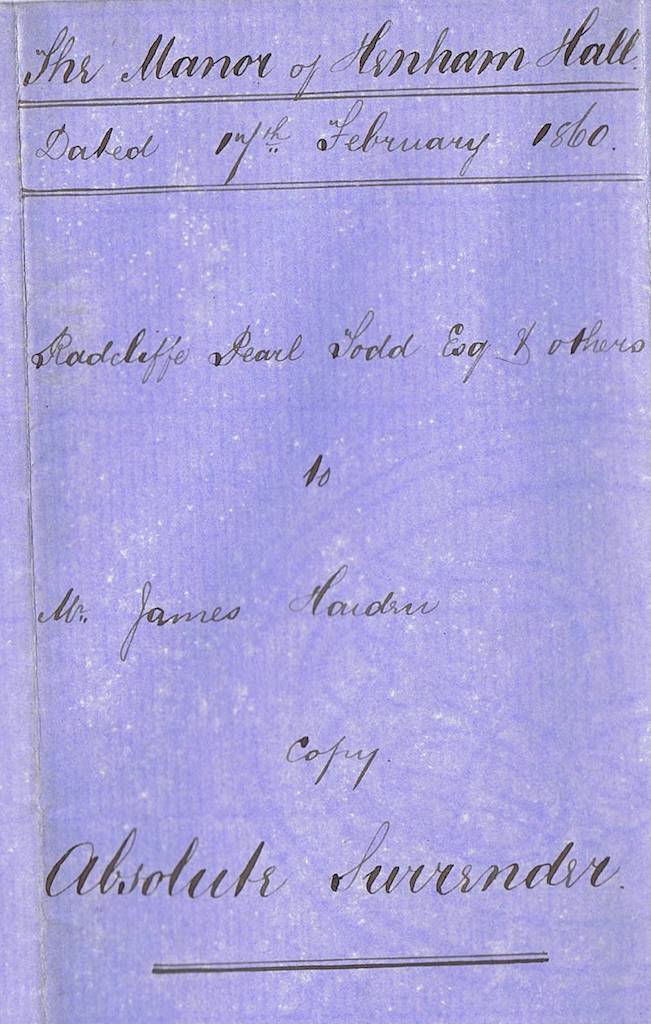 The Manor of Henham Hall.
Dated 17th February 1860.
Radcliffe Pearl Todd Esq & others
to
Mr. James
Copy.
Absolute Surrender.